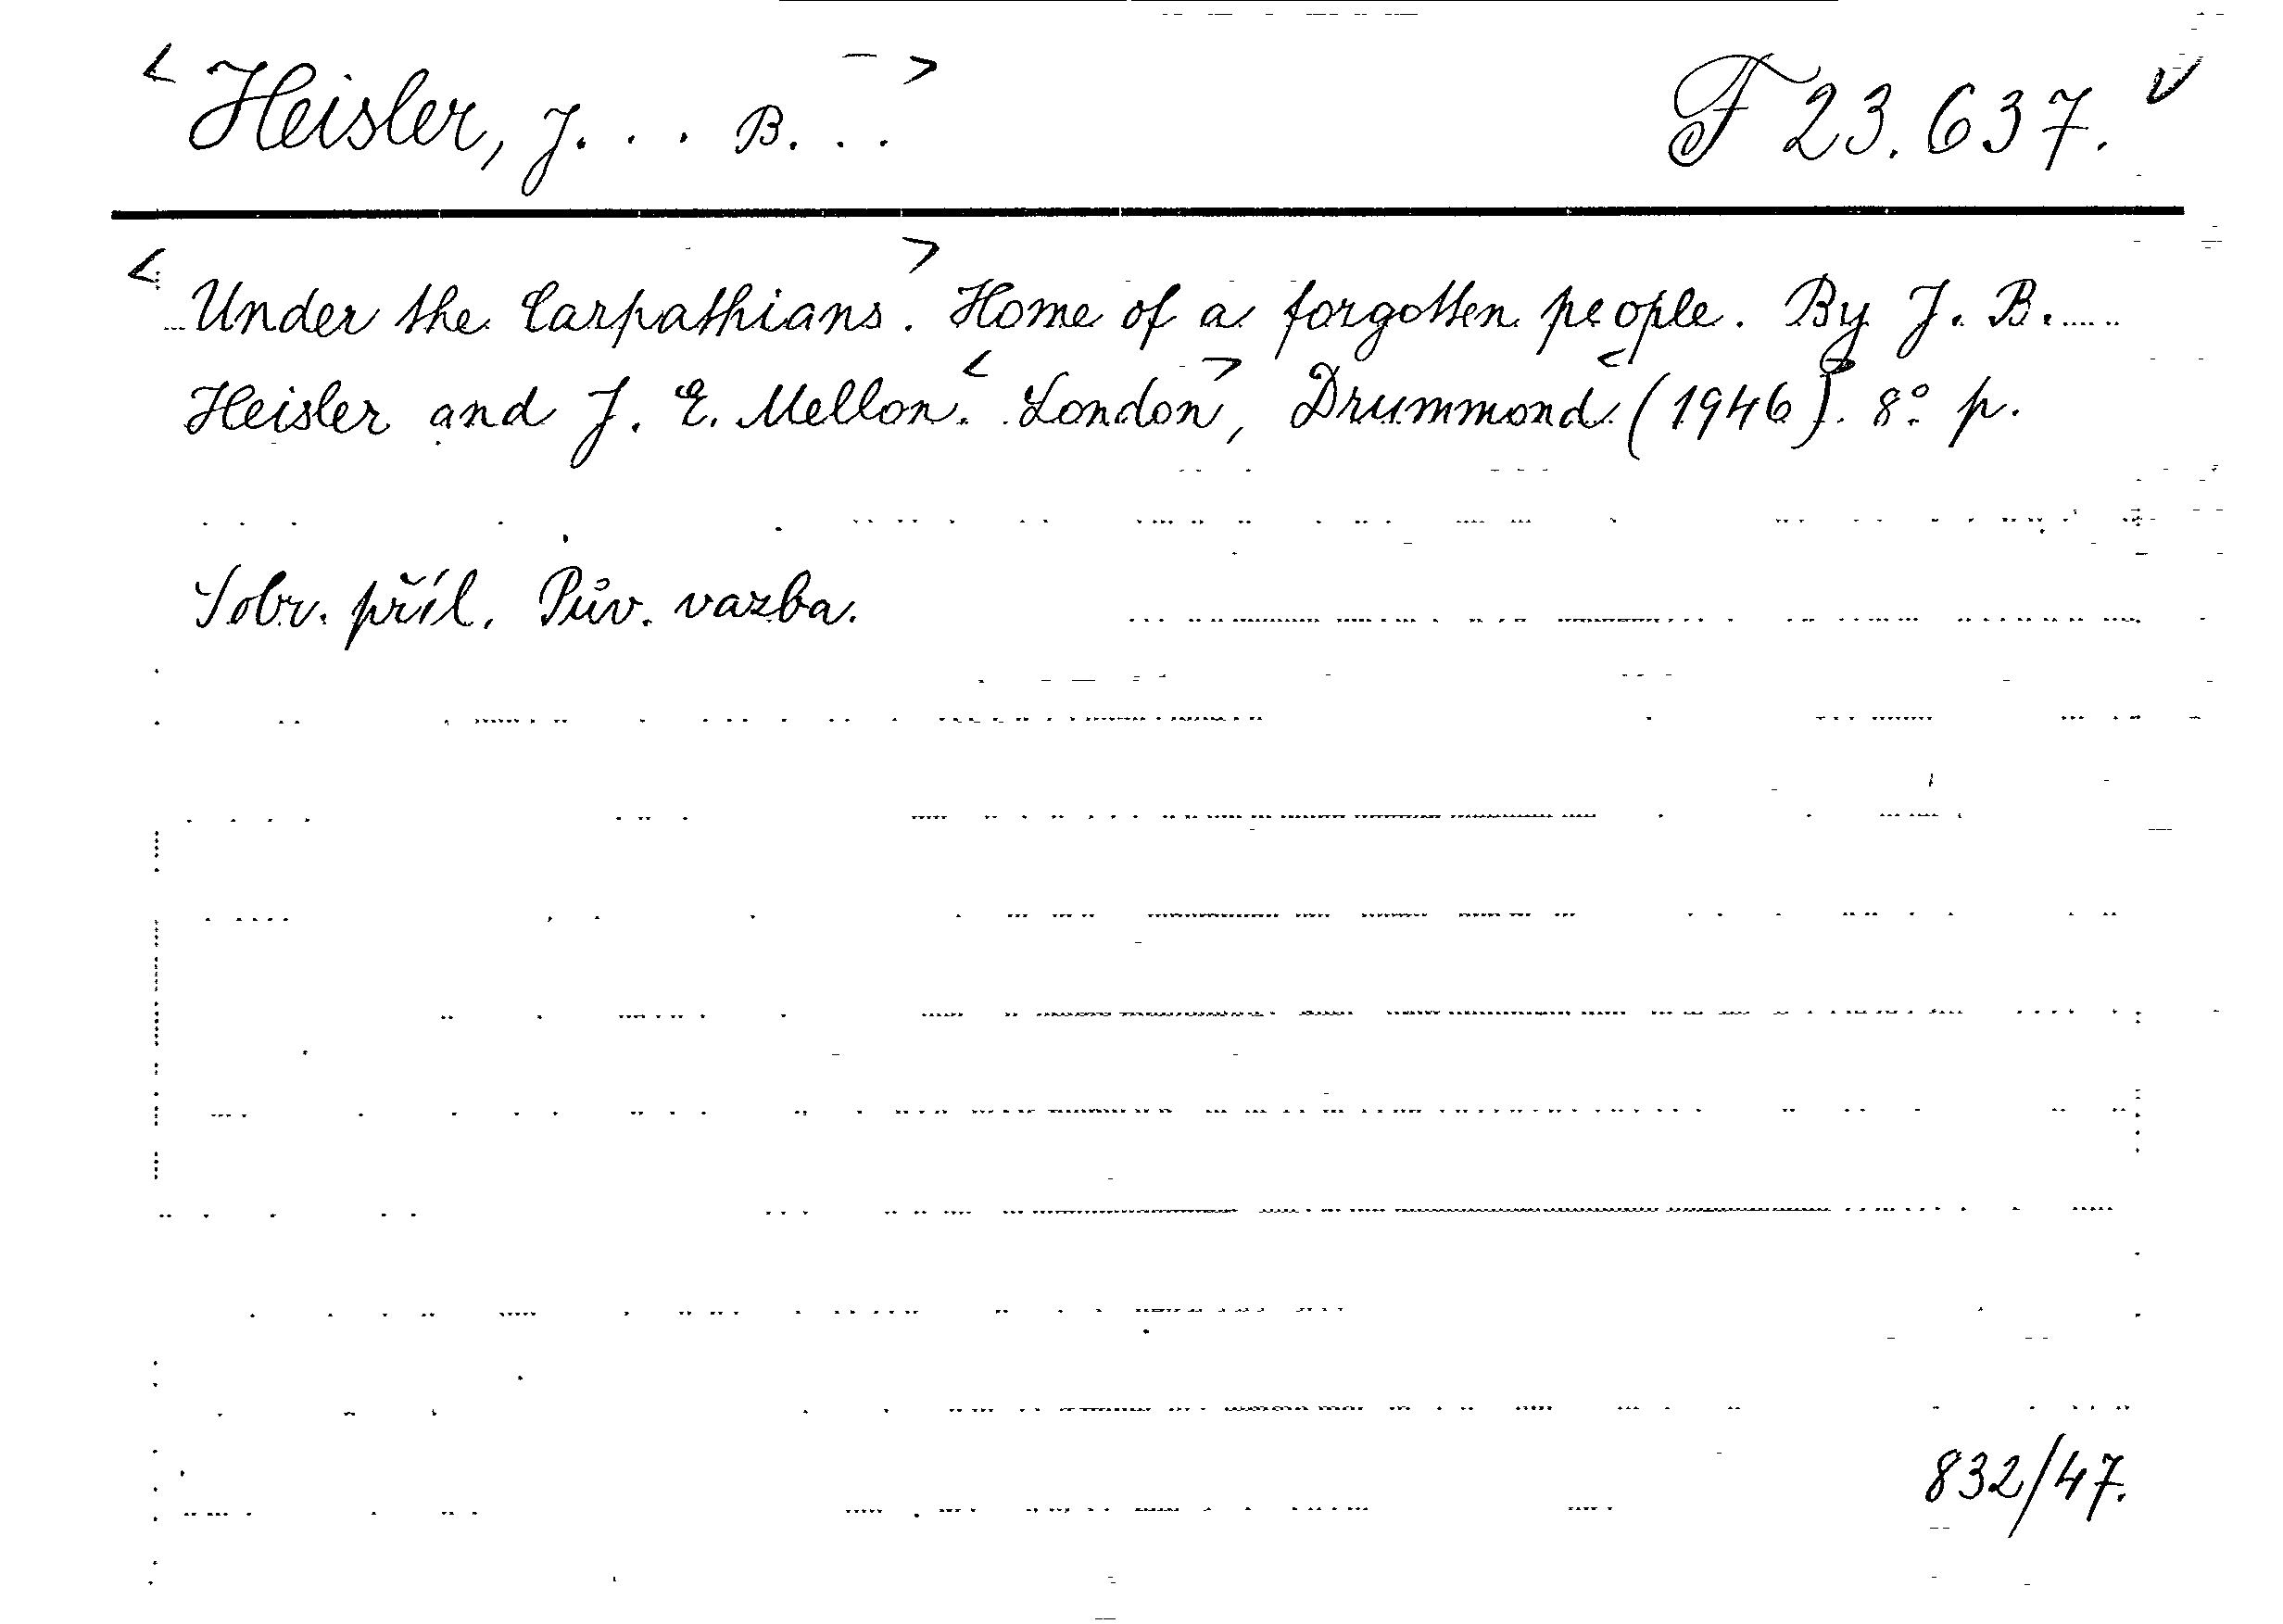 < Heisler, J. . . B. . . > F 23.637. ✓
< Under the Carpathians. > Home of a forgotten people. By J. B.
Heisler and J. E. Mellon. < London >, Drummond < (1946) >. 8° p.
S obr. příl. Pův. vazba.
832/47.